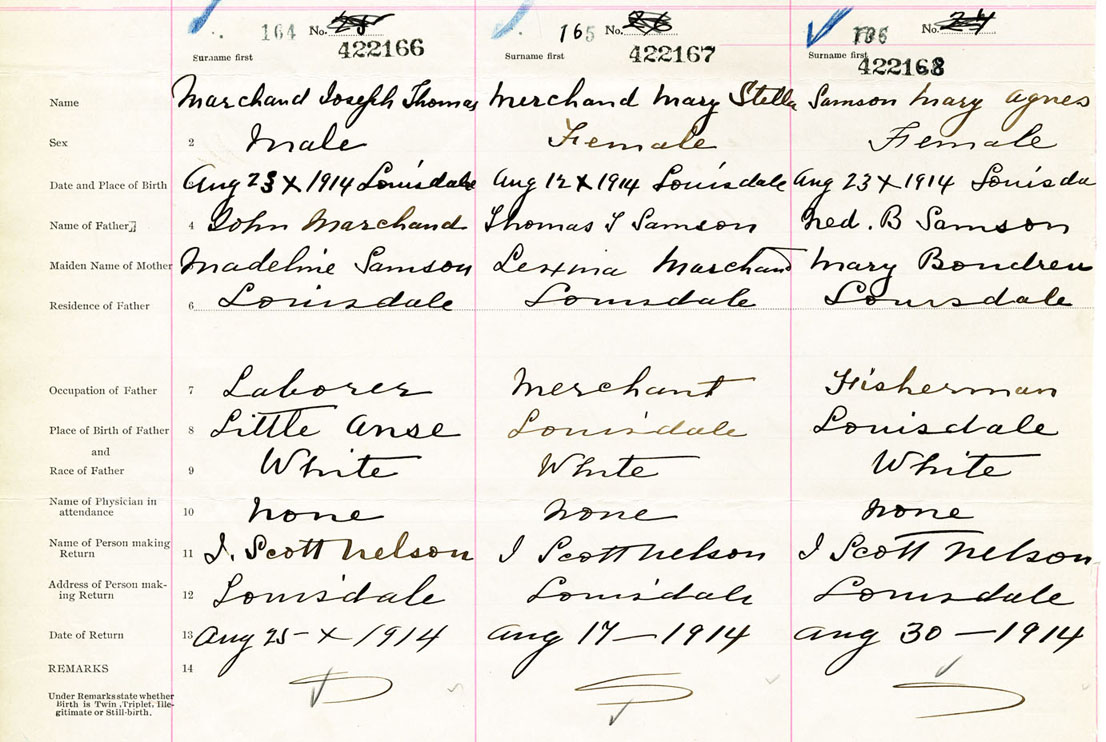 164 No. 422166 165 No. 422167 No. 24 422168
Surname first Surname first Surname first
Name Marchand Joseph Thomas Merchand Mary Stella Samson Mary Agnes
Sex 2 Male Female Female
Date and Place of Birth Aug 23 X 1914 Louisdale Aug 12 X 1914 Louisdale Aug 23 X 1914 Louisda
Name of Father 4 John Marchand Thomas T Samson Ned. B Samson
Maiden Name of Mother Madeline Samson Lexina Marchand Mary Boudreu
Residence of Father 6 Louisdale Louisdale Louisdale
Occupation of Father 7 Laborer Merchant Fisherman
Place of Birth of Father 8 Little Anse Louisdale Louisdale
and
Race of Father 9 White White White
Name of Physician in
attendance 10 None None None
Name of Person making
Return 11 J. Scott Nelson J Scott Nelson J Scott Nelson
Address of Person mak-
ing Return 12 Louisdale Louisdale Louisdale
Date of Return 13 Aug 25 - X 1914 Aug 17 — 1914 Aug 30 — 1914
REMARKS 14
Under Remarks state whether
Birth is Twin, Triplet, Ille-
gitimate or Still-birth.